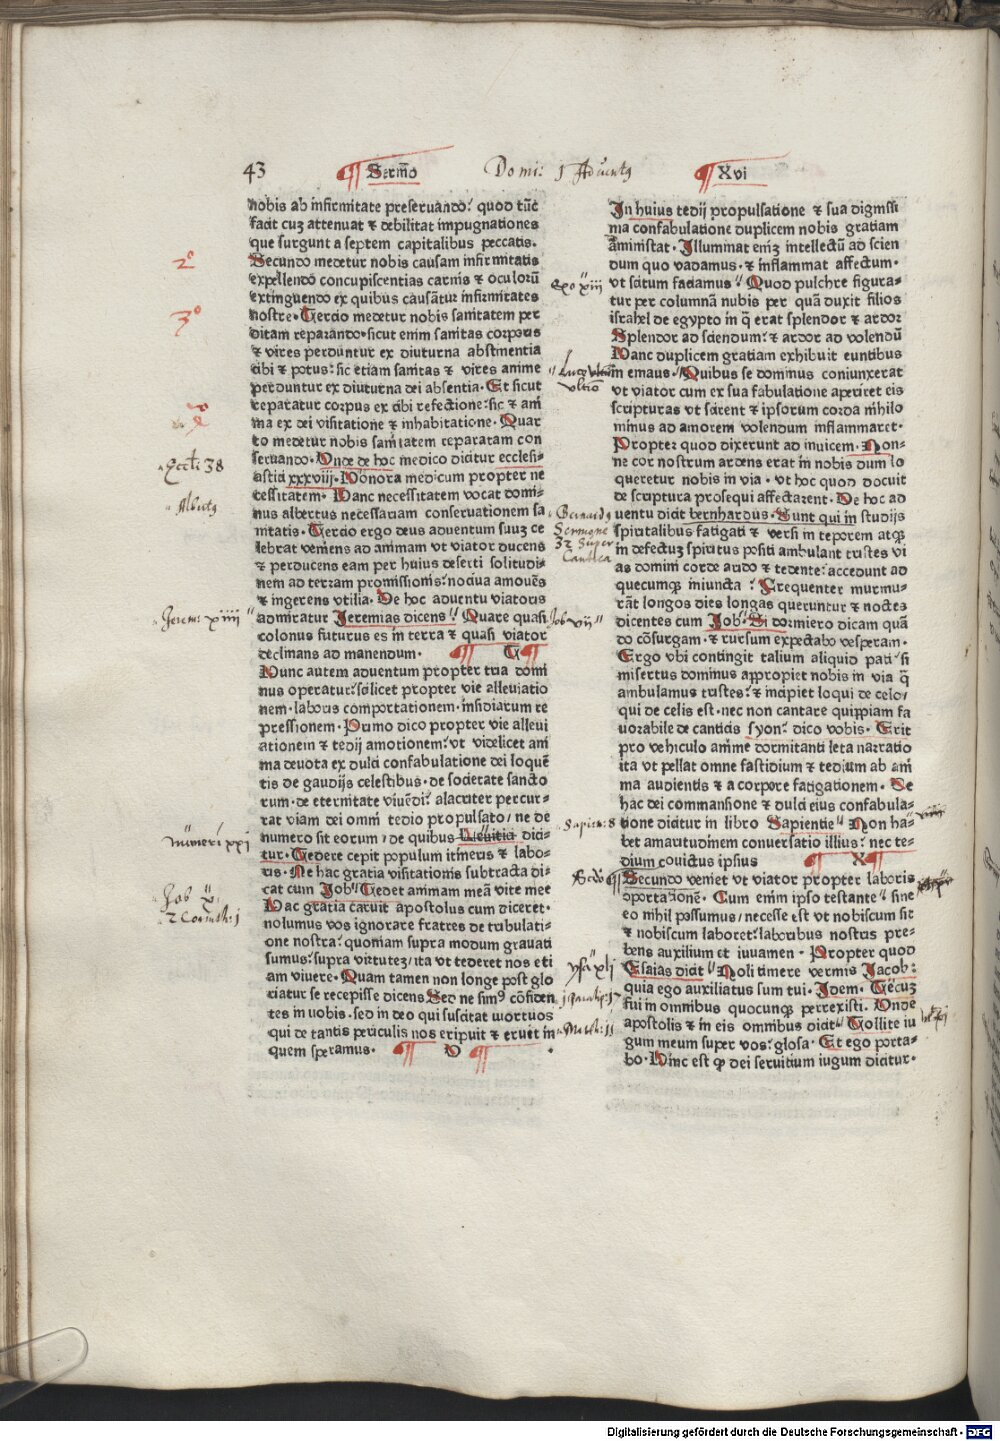 43 Sermo Domi: j Aduentꝰ Xvi
nobis ab infirmitate preseruando. quod tūc
facit cuz attenuat ⁊ debilitat impugnationes
que surgunt a septem capitalibus peccatis.
Secundo medetur nobis causam infirmitatis
expellendo concupiscentias carnis ⁊ oculorū
extinguendo ex quibus causātur infirmitates
nostre. Tercio medetur nobis sanitatem per
ditam reparando. sicut enim sanitas corporis
⁊ vires perduntur ex diuturna abstinentia
cibi ⁊ potus: sic etiam sanitas ⁊ vires anime
perduntur ex diuturna dei absentia. Et sicut
reparatur corpus ex cibi refectione: sic ⁊ ani
ma ex dei visitatione ⁊ inhabitatione. Quar
to medetur nobis sanitatem reparatam con
seruando. Onde de hoc medico dicitur ecclesi-
astici xxxviij. Honora medicum propter ne
cessitatem. Hanc necessitatem vocat domi-
nus albertus necessariam conseruationem sa
nitatis. Tercio ergo deus aduentum suuz ce
lebrat veniens ad animam vt viator ducens
⁊ perducens eam per huius deserti solitudi-
nem ad terram promissionis: nociua amouēs
⁊ ingerens vtilia. De hoc aduentu viatoris
admiratur Jeremias dicens" Quare quasi
colonus futurus es in terra ⁊ quasi viator
declinans ad manendum. ¶ T ¶
Hunc autem aduentum propter tria domi
nus operatur: scilicet propter vie alleuiatio
nem. laboris comportationem. insidiarum re
pressionem. Primo dico propter vie alleui
ationem ⁊ tedij amotionem: vt videlicet ani
ma deuota ex dulci confabulatione dei loquē
tis de gaudijs celestibus. de societate sancto
rum. de eternitate viuēdi: alacriter percur-
rat viam dei omni tedio propulsato/ ne de
numero sit eorum/ de quibus Leuitici dici-
tur. Tedere cepit populum itineris ⁊ labo-
ris. Ne hac gratia visitationis subtracta di-
cat cum Job" Tedet animam meā vite mee
Hac gratia caruit apostolus cum diceret.
nolumus vos ignorare fratres de tribulati-
one nostra: quoniam supra modum grauati
sumus: supra virtutez/ ita vt tederet nos eti
am viuere. Quam tamen non longe post glo
riatur se recepisse dicens Sed ne simꝰ cōfiden
tes in uobis. sed in deo qui suscitat mortuos
qui de tantis periculis nos eripuit ⁊ eruet in
quem speramus. ¶ V ¶
In huius tedij propulsatione ⁊ sua dignissi
ma confabulatione duplicem nobis gratiam
aministrat. Illuminat eniz intellectū ad scien
dum quo vadamus. ⁊ inflammat affectum.
vt scitum faciamus" Quod pulchre figura-
tur per columnā nubis per quā duxit filios
israhel de egypto in q̄ erat splendor ⁊ ardor
Splendor ad sciendum: ⁊ ardor ad volendū
Hanc duplicem gratiam exhibuit euntibus
in emaus. Quibus se dominus coniunxerat
vt viator cum ex sua fabulatione aperiret eis
scripturas vt scirent ⁊ ipsorum corda nihilo
minus ad amorem volendum inflammaret.
Propter quod dixerunt ad inuicem. Non-
ne cor nostrum ardens erat in nobis dum lo
queretur nobis in via. vt hoc quod docuit
de scriptura prosequi affectarent. De hoc ad
uentu dicit bernhardus. Sunt qui in studijs
spiritalibus fatigati ⁊ versi in teporem atqꝫ
in defectuz spiritus positi ambulant tristes vi
as domini corde arido ⁊ tedente: accedunt ad
quecumqꝫ iniuncta: Frequenter murmu-
rāt longos dies longas queruntur ⁊ noctes
dicentes cum Job" Si dormiero dicam quā
do cōsurgam. ⁊ rursum expectabo vesperam.
Ergo vbi contingit talium aliquid pati: si
misertus dominus appropiet nobis in via q̄
ambulamus tristes: ⁊ incipiet loqui de celo/
qui de celis est. nec non cantare quippiam fa
uorabile de canticis syon: dico vobis. Erit
pro vehiculo anime dormitanti leta narratio
ita vt pellat omne fastidium ⁊ tedium ab ani
ma audientis ⁊ a corpore fatigationem. De
hac dei commansione ⁊ dulci eius confabula-
tione dicitur in libro Sapientie" Non ha-
bet amaritudinem conuersatio illius: nec te-
dium cōuictus ipsius ¶ X ¶
Secundo veniet vt viator propter laboris
cōportationē. Cum enim ipso testante" sine
eo nihil possumus/ necesse est vt nobiscum sit
⁊ nobiscum laboret: laboribus nostris pre-
bens auxilium et iuuamen. Propter quod
Esaias dicit" Noli timere vermis Jacob:
quia ego auxiliatus sum tui. Idem. Tecuz
fui in omnibus quocunqꝫ perrexisti. Onde
apostolis ⁊ in eis omnibus dicit" Tollite iu
gum meum super vos: glosa. Et ego porta-
bo. Hinc est ꝙ dei seruitium iugum dicitur.
2º
3º
Eccli 38
Albertꝰ
Jerem: xiiii
numeri xxj
Job x
2 Corinth: j
Exo xiii
Luce
vltīo
Bernardꝰ
Sermone
32 super
Cantica
Job vij
Sapien: 8
ysa xlj
j paralip: 17
Math: 11
Digitalisierung gefördert durch die Deutsche Forschungsgemeinschaft - DFG